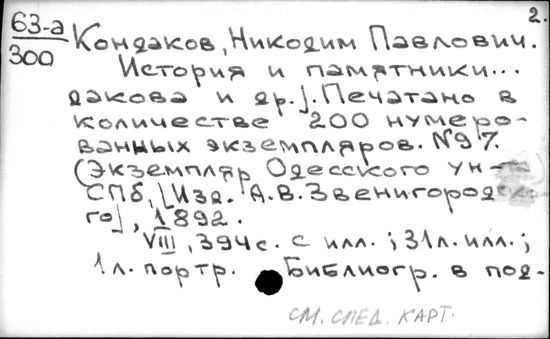 2.
63-а
300
Кондаков, Никодим Павлович.
История и памятники...
дакова и др.]. Печатано в
количестве 200 нумеро-
ванных экземпляров. №97.
(Экземпляр Одесского ун-та
СПб, [Изд. А.В.Звенигородско-
го], 1892.
VIII, 394с. с илл.; 31л. илл.;
1л. портр. Библиогр. в под-
СМ. СЛЕД. КАРТ.